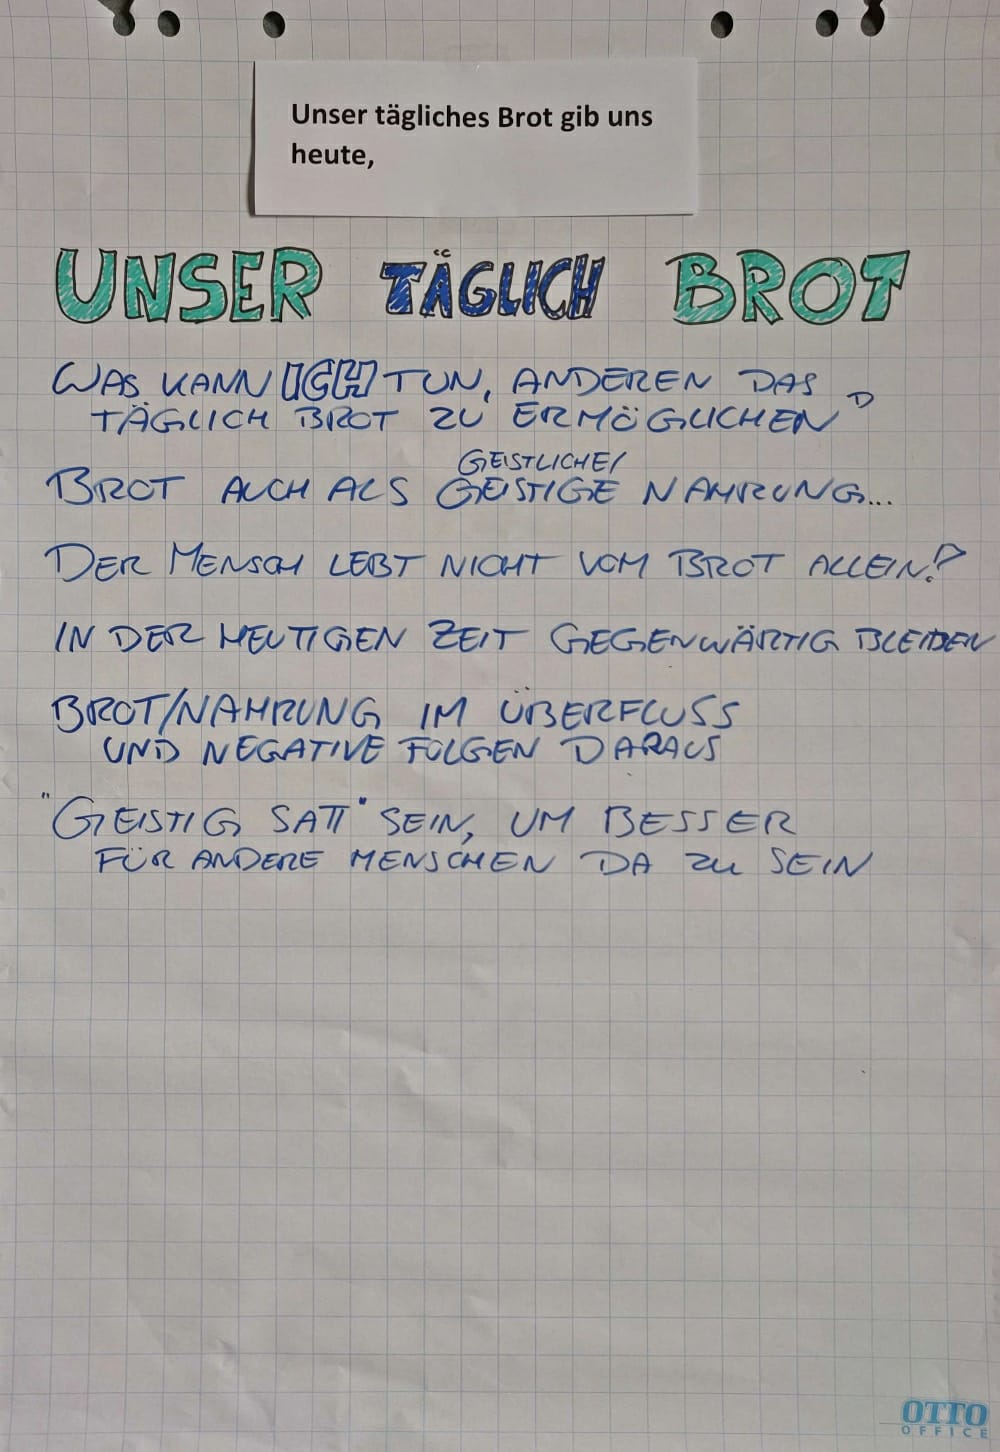 Unser tägliches Brot gib uns
heute,
UNSER TÄGLICH BROT
WAS KANN ICH TUN, ANDEREN DAS
TÄGLICH BROT ZU ERMÖGLICHEN?
GEISTLICHE/
BROT AUCH ALS GEISTIGE NAHRUNG...
DER MENSCH LEBT NICHT VOM BROT ALLEIN!?
IN DER HEUTIGEN ZEIT GEGENWÄRTIG BLEIBEN
BROT/NAHRUNG IM ÜBERFLUSS
UND NEGATIVE FOLGEN DARAUS
"GEISTIG SATT" SEIN, UM BESSER
FÜR ANDERE MENSCHEN DA ZU SEIN
OTTO
OFFICE